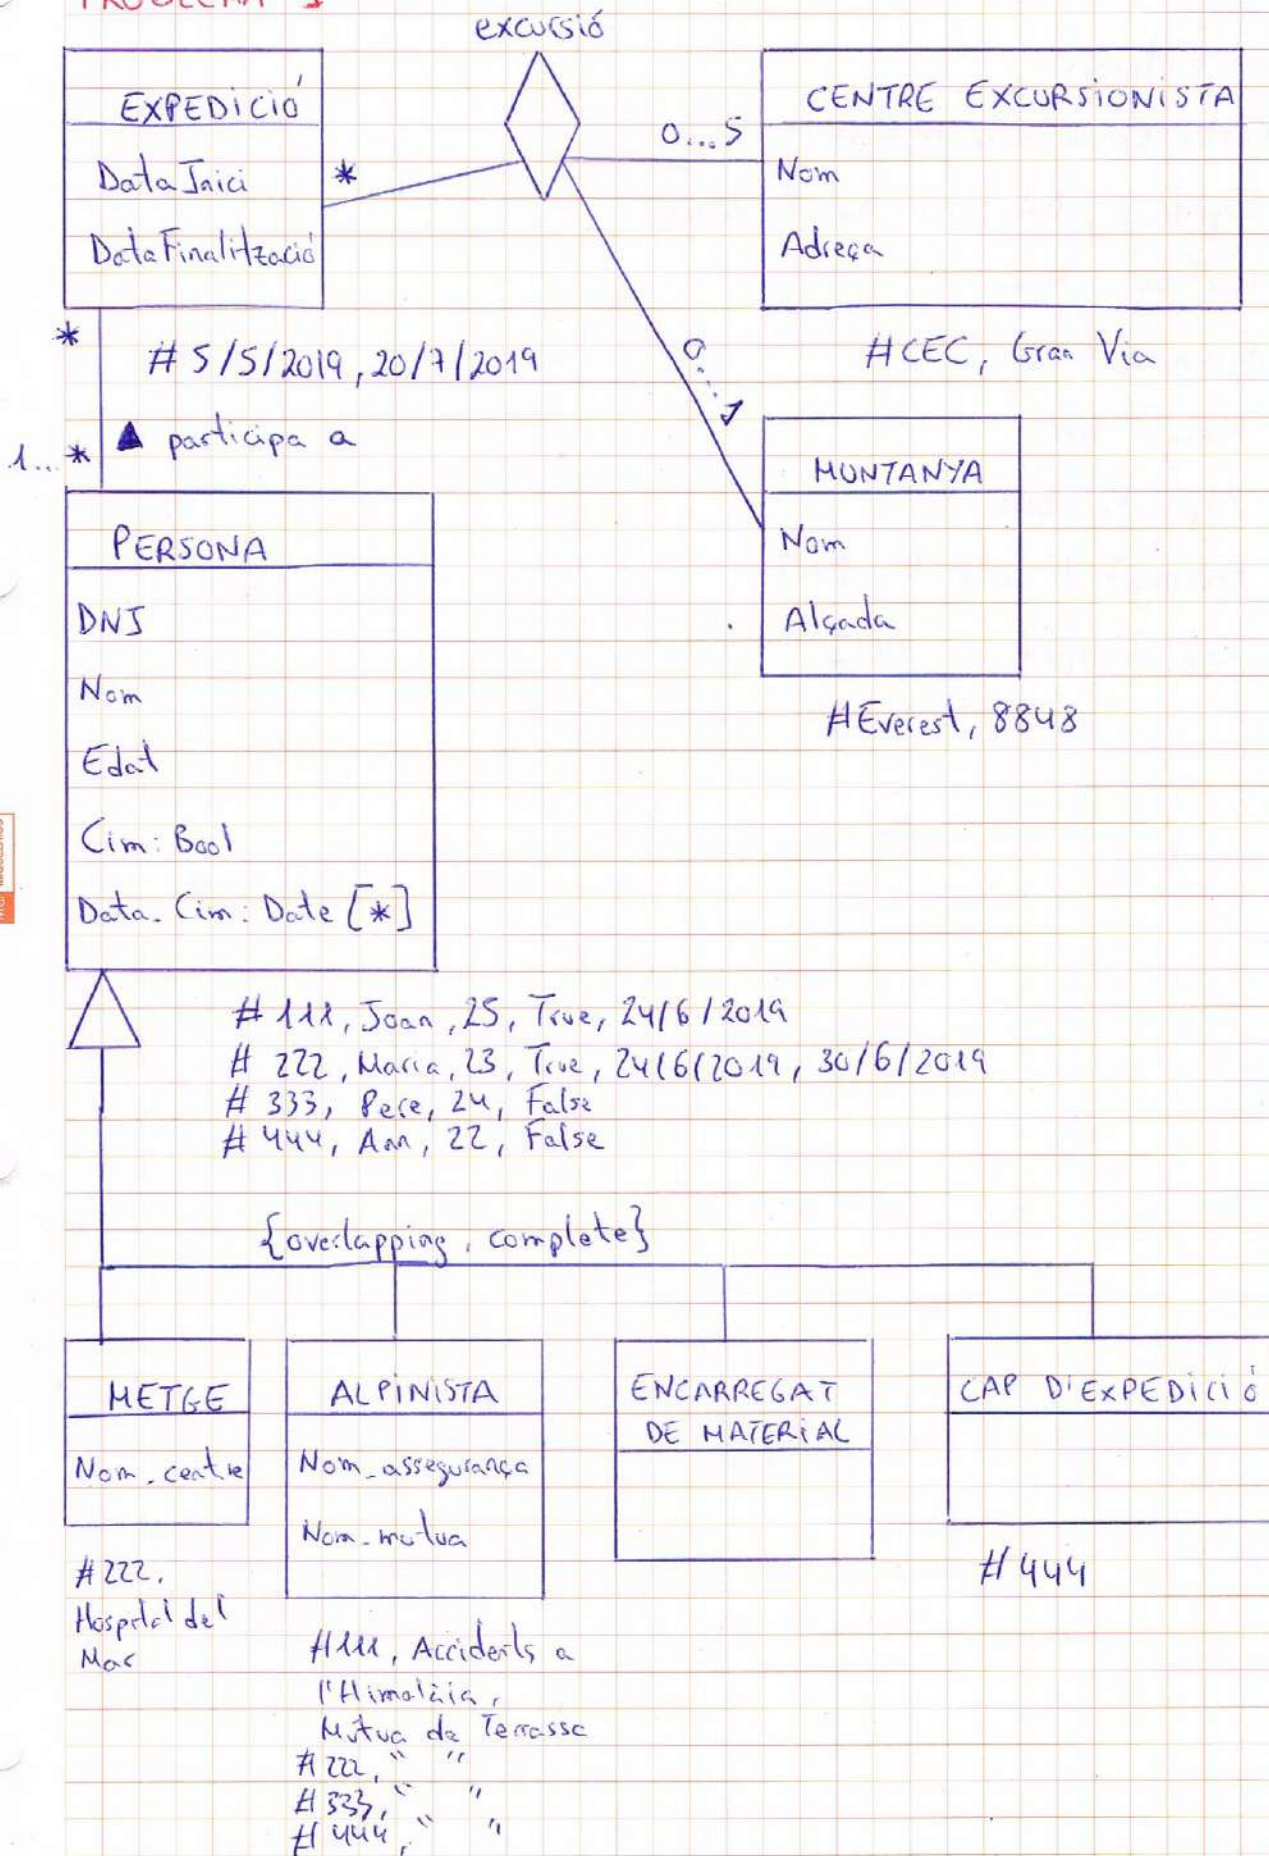 PROBLEMA 1
excursió
EXPEDICIÓ
Data Inici
Data Finalització
*
0...5
CENTRE EXCURSIONISTA
Nom
Adreça
#CEC, Gran Via
*
# 5/5/2019, 20/7/2019
▲ participa a
1...*
0...1
MUNTANYA
Nom
Alçada
#Everest, 8848
PERSONA
DNI
Nom
Edat
Cim: Bool
Data_Cim: Date [*]
# 111, Joan, 25, True, 24/6/2019
# 222, Maria, 23, True, 24/6/2019, 30/6/2019
# 333, Pere, 24, False
# 444, Ann, 22, False
{overlapping, complete}
METGE
Nom_centre
#222,
Hospital del
Mar
ALPINISTA
Nom_assegurança
Nom_mutua
#111, Accidents a
l'Himalàia,
Mútua de Terrassa
#222, " "
#333, " "
#444, " "
ENCARREGAT
DE MATERIAL
CAP D'EXPEDICIÓ
#444